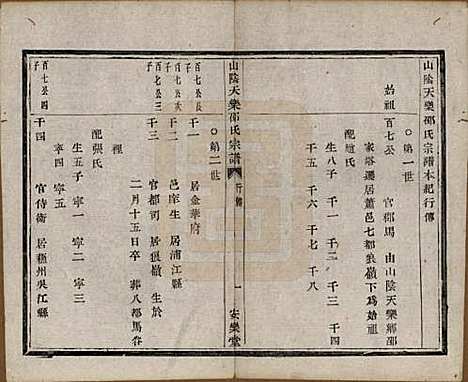 山陰天樂邵氏宗譜本紀行傳
○第一世
始祖百七公 官都馬 由山陰天樂鄉邵
家塔遷居蕭邑七都狼嶺下爲始祖
配道氏
生八子 千一 千二 千三 千四
千五 千六 千七 千八
山陰天樂邵氏宗譜 行傳 一 安樂堂
○第二世
百七公長子
千一 居金華府
百七公次子
千二 邑庠生 居浦江縣
百七公三子
千三 官都司 居狼嶺 生於
二月十五日卒 葬八都馬脊
裡
配張氏
生五子 寧一 寧二 寧三
寧四 寧五
百七公四子
千四 官侍衛 居穩州吳江縣